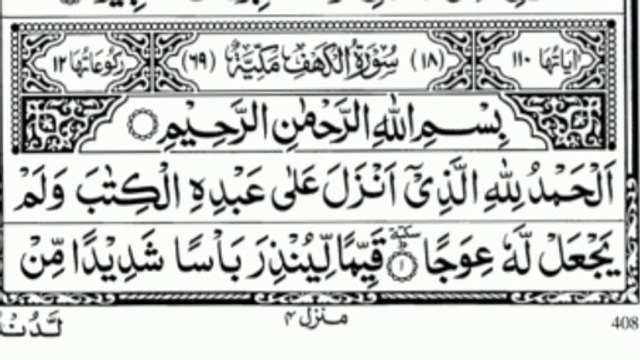 اٰیَاتُهَا ۱۱۰ (۱۸) سُوْرَةُ الْكَهْفِ مَكِّیَّةٌ (۶۹) رُكُوْعَاتُهَا ۱۲
بِسْمِ اللّٰهِ الرَّحْمٰنِ الرَّحِیْمِ
اَلْحَمْدُ لِلّٰهِ الَّذِیْۤ اَنْزَلَ عَلٰی عَبْدِهِ الْكِتٰبَ وَلَمْ
یَجْعَلْ لَّهٗ عِوَجًا ۱ سكتة قَیِّمًا لِّیُنْذِرَ بَاْسًا شَدِیْدًا مِّنْ
لَّدُنْهُ منزل ۴ 408